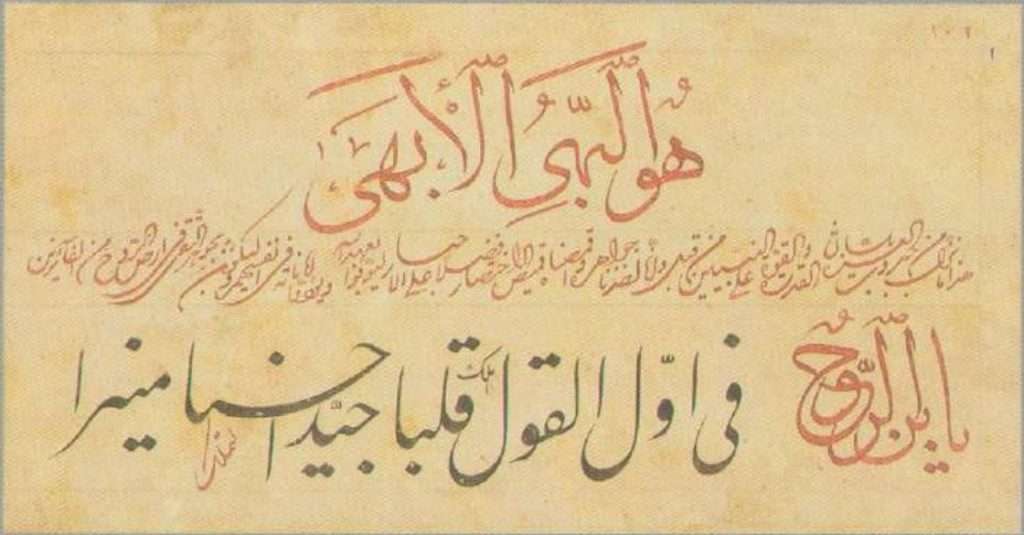 ١
هو البهی الأبهی
هذا ما نزل من جبروت العزة بلسان القدرة والقوة علی النبیین من قبل وانا اخذنا جواهره واقمصناه قمیص الاختصار فضلا علی الاحبار لیوفوا بعهد الله ویؤدوا اماناته فی انفسهم ولیکونن بجوهر التقی فی ارض الروح من الفائزین
یابن الروح فی اوّل القول املک قلبا جیّدا حسنا منیرا
لتملک